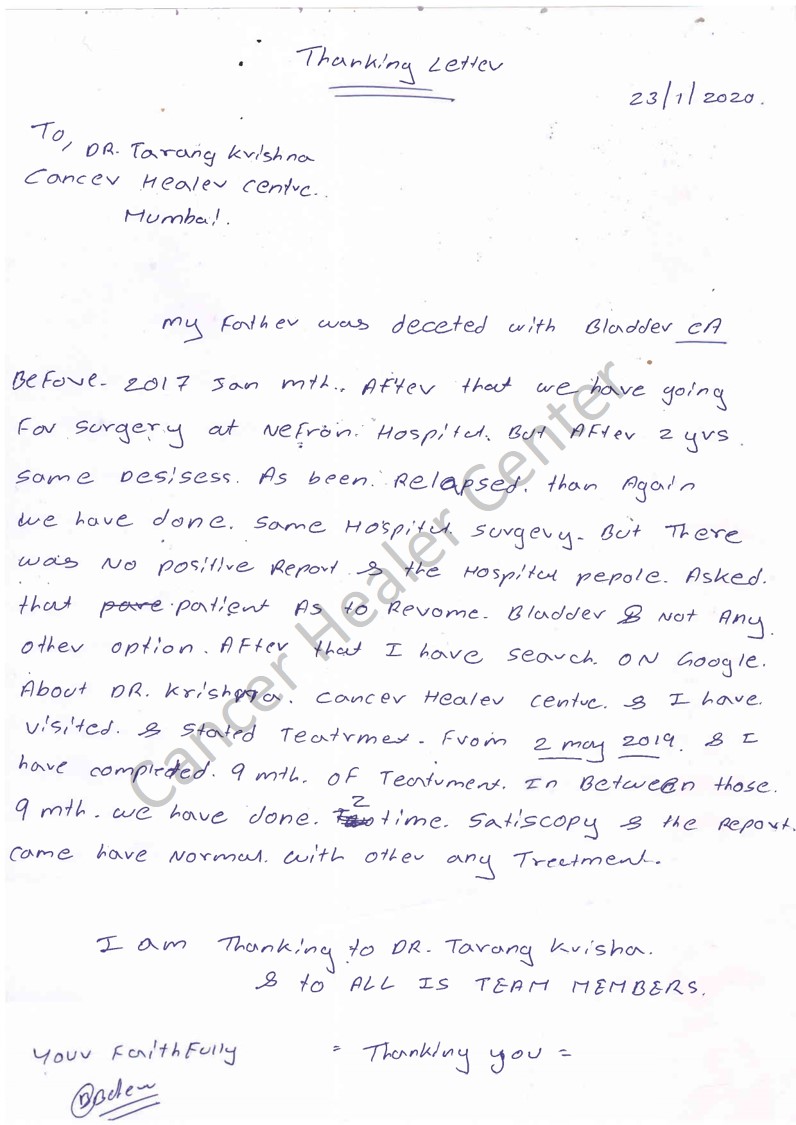 Thanking Letter
23/1/2020.
To,
DR. Tarang Krishna
Cancer Healer Centre.
Mumbai.
My Father was deceted with Bladder CA
Before- 2017 Jan mth.. After that we have going
For surgery at Nefron. Hospital. But After 2 yrs.
Same Desisess. As been. Relapsed. than Again
we have done. same Hospital surgery. But There
was No positive Report & the Hospital pepole. Asked.
that pare patient As to Revome. Bladder & Not Any.
other option. After that I have search. ON Google.
About DR. Krishna. Cancer Healer Centre. & I have.
visited. & Stated Teatrmet. From 2 may 2019. & I
have completed. 9 mth. OF Teatument. In Between those.
9 mth. we have done. 2 time. Satiscopy & the Report.
came have Normal. with other any Treatment.
I am Thanking to DR. Tarang Krisha.
& to ALL IS TEAM MEMBERS.
Your Faithfully = Thanking you =
Cancer Healer Center